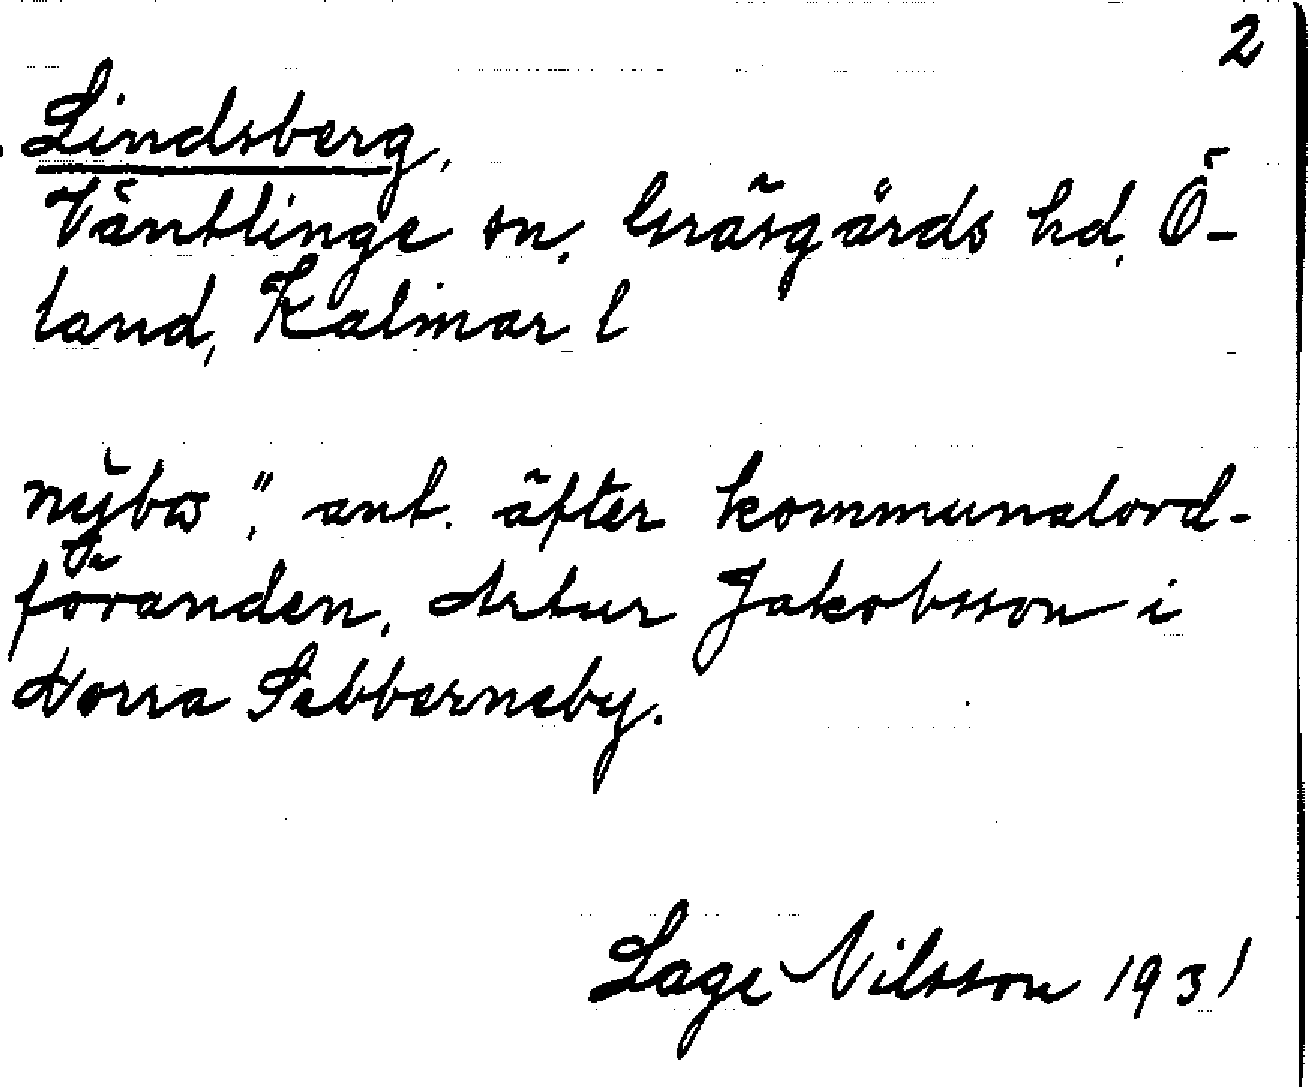 2
Lindsberg,
Väntlinge sn, Gräsgårds hd, Ö-
land, Kalmar l
nybos", ant. äfter kommunalord-
föranden, Artur Jakobsson i
Norra Sebberneby.
Sage Nilsson 1931